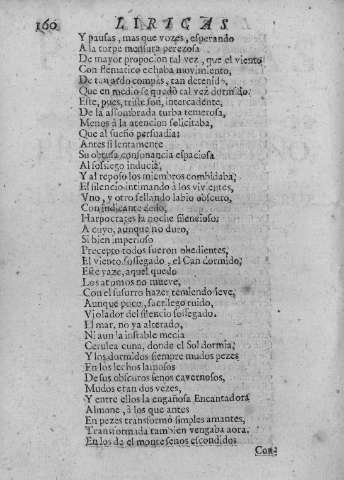 160 LIRICAS
Y pausas, mas que vozes, esperando
A la torpe mensura perezosa
De mayor propocion tal vez, que el viento
Con flematico echaba movimiento,
De tan tardo compas, tan detenido,
Que en medio se quedò tal vez dormido.
Este, pues, triste son, intercadente,
De la assombrada turba temerosa,
Menos à la atencion solicitaba,
Que al sueño persuadia:
Antes si lentamente
Su obtusa consonancia espaciosa
Al sossiego inducia,
Y al reposo los miembros combidaba;
El silencio intimando à los vivientes,
Vno, y otro sellando labio obscuro,
Con indicante dedo,
Harpocrates la noche silencioso:
A cuyo, aunque no duro,
Si bien imperioso
Precepto todos fueron obedientes,
El viento sossegado, el Can dormido;
Este yaze, aquel quedo
Los atomos no mueve,
Con el susurro hazer temiendo leve,
Aunque poco, sacrilego ruido,
Violador del silencio sossegado.
El mar, no ya alterado,
Ni aun la instable mecia
Cerulea cuna, donde el Sol dormia;
Y los dormidos siempre mudos pezes
En los lechos lamosos
De sus obscuros senos cavernosos,
Mudos eran dos vezes,
Y entre ellos la engañosa Encantadora
Almone, à los que antes
En pezes transformò simples amantes,
Transformada tambien vengaba aora.
En los de el monte senos escondidos
Con-